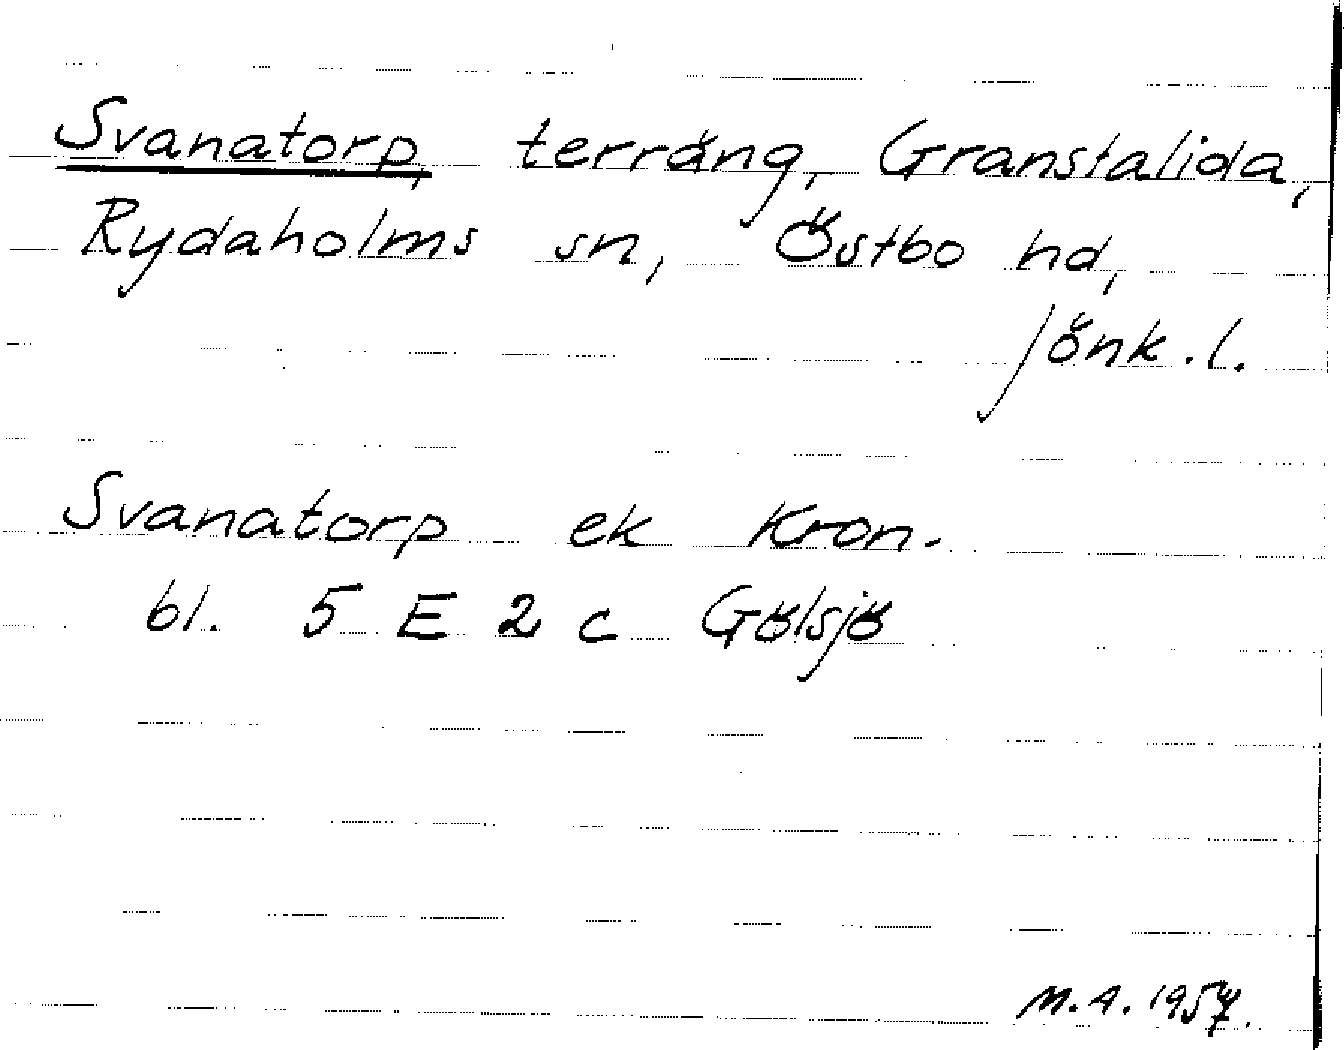 Svanatorp, terräng, Granstalida,
Rydaholms sn, Östbo hd,
Jönk.l.
Svanatorp ek Kron.
bl. 5 E 2 c Gölsjö
M.A. 1957.